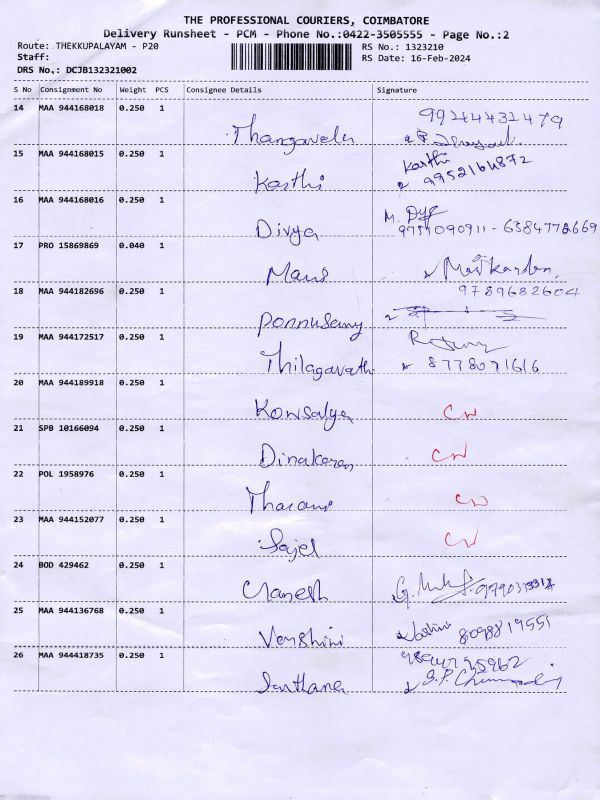 THE PROFESSIONAL COURIERS, COIMBATORE
Delivery Runsheet - PCM - Phone No.:0422-3505555 - Page No.:2
Route: THEKKUPALAYAM - P20 RS No.: 1323210
Staff: RS Date: 16-Feb-2024
DRS No.: DCJB132321002
S No Consignment No Weight PCS Consignee Details Signature
14 MAA 944168018 0.250 1
Thangavelu
15 MAA 944168015 0.250 1 Karthi
Karthi 9952164872
16 MAA 944168016 0.250 1
Divya
17 PRO 15869869 0.040 1
Mani Manikandan
18 MAA 944182696 0.250 1 9789682604
Ponnusamy
19 MAA 944172517 0.250 1
Thilagavathi 8778071616
20 MAA 944189918 0.250 1
Kowsalya CW
21 SPB 10166094 0.250 1
Dinakaran CW
22 POL 1958976 0.250 1
Tharani CW
23 MAA 944152077 0.250 1
Sajel CW
24 BOD 429462 0.250 1
Ganesh
25 MAA 944136768 0.250 1
Varshini 8098819551
26 MAA 944418735 0.250 1